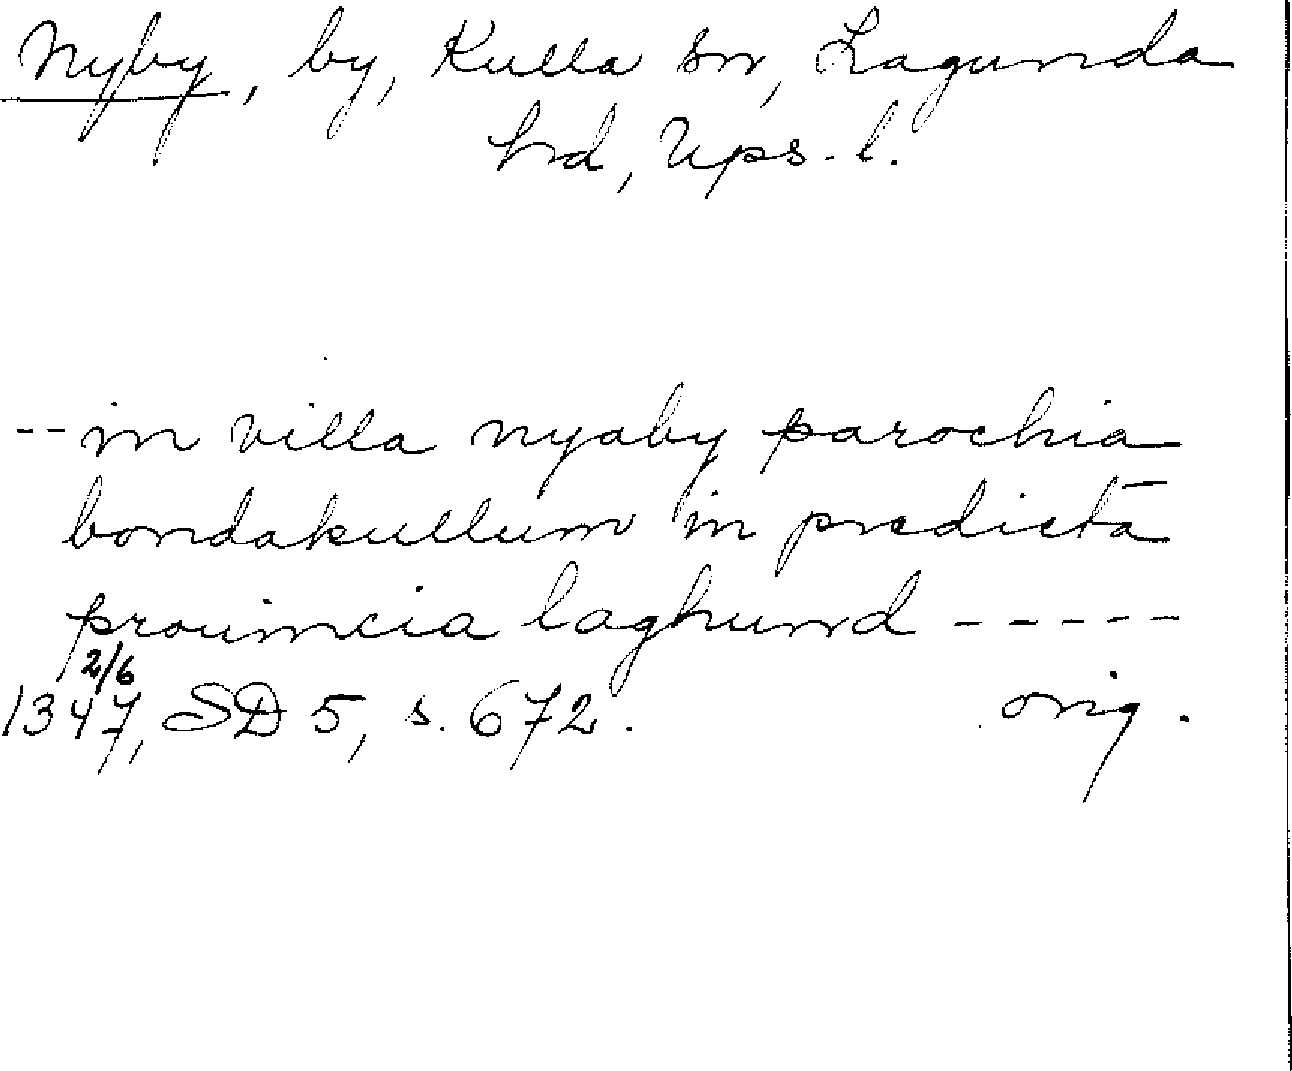 Nyby, by, Kulla sn, Lagunda
hd, Ups. l.
-- in villa nyaby parochia
bondakullum in predictā
prouincia laghund -----
2/6
1347, SD 5, s. 672. orig.